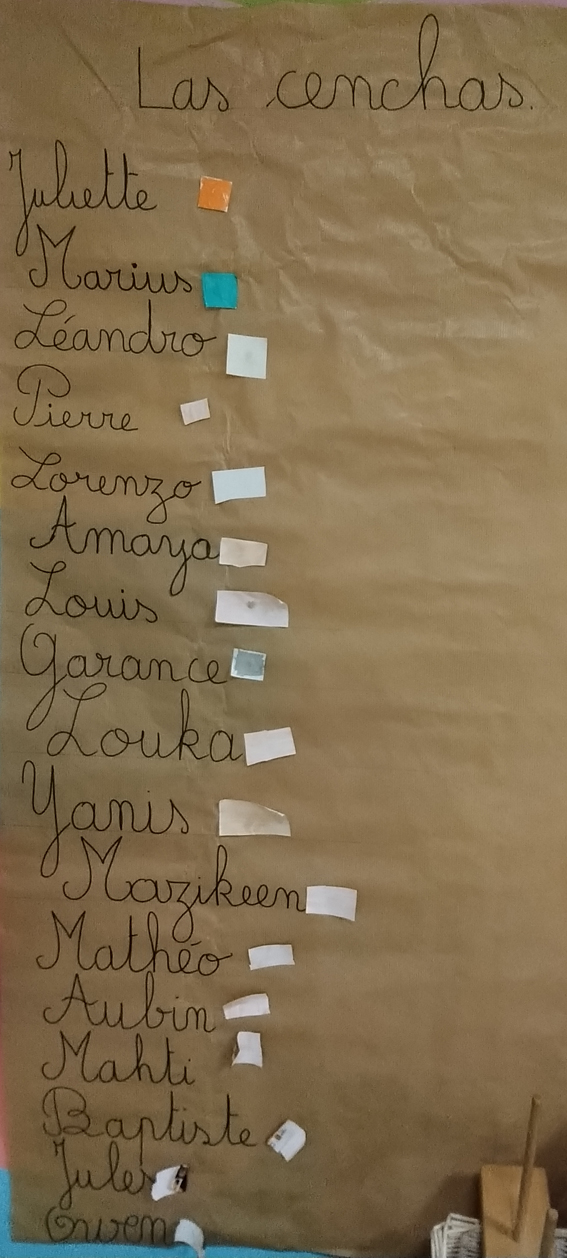 Las cenchas.
Juliette
Marius
Léandro
Pierre
Lorenzo
Amaya
Louis
Garance
Louka
Yanis
Mazikeen
Mathéo
Aubin
Mahti
Baptiste
Jules
Gwen